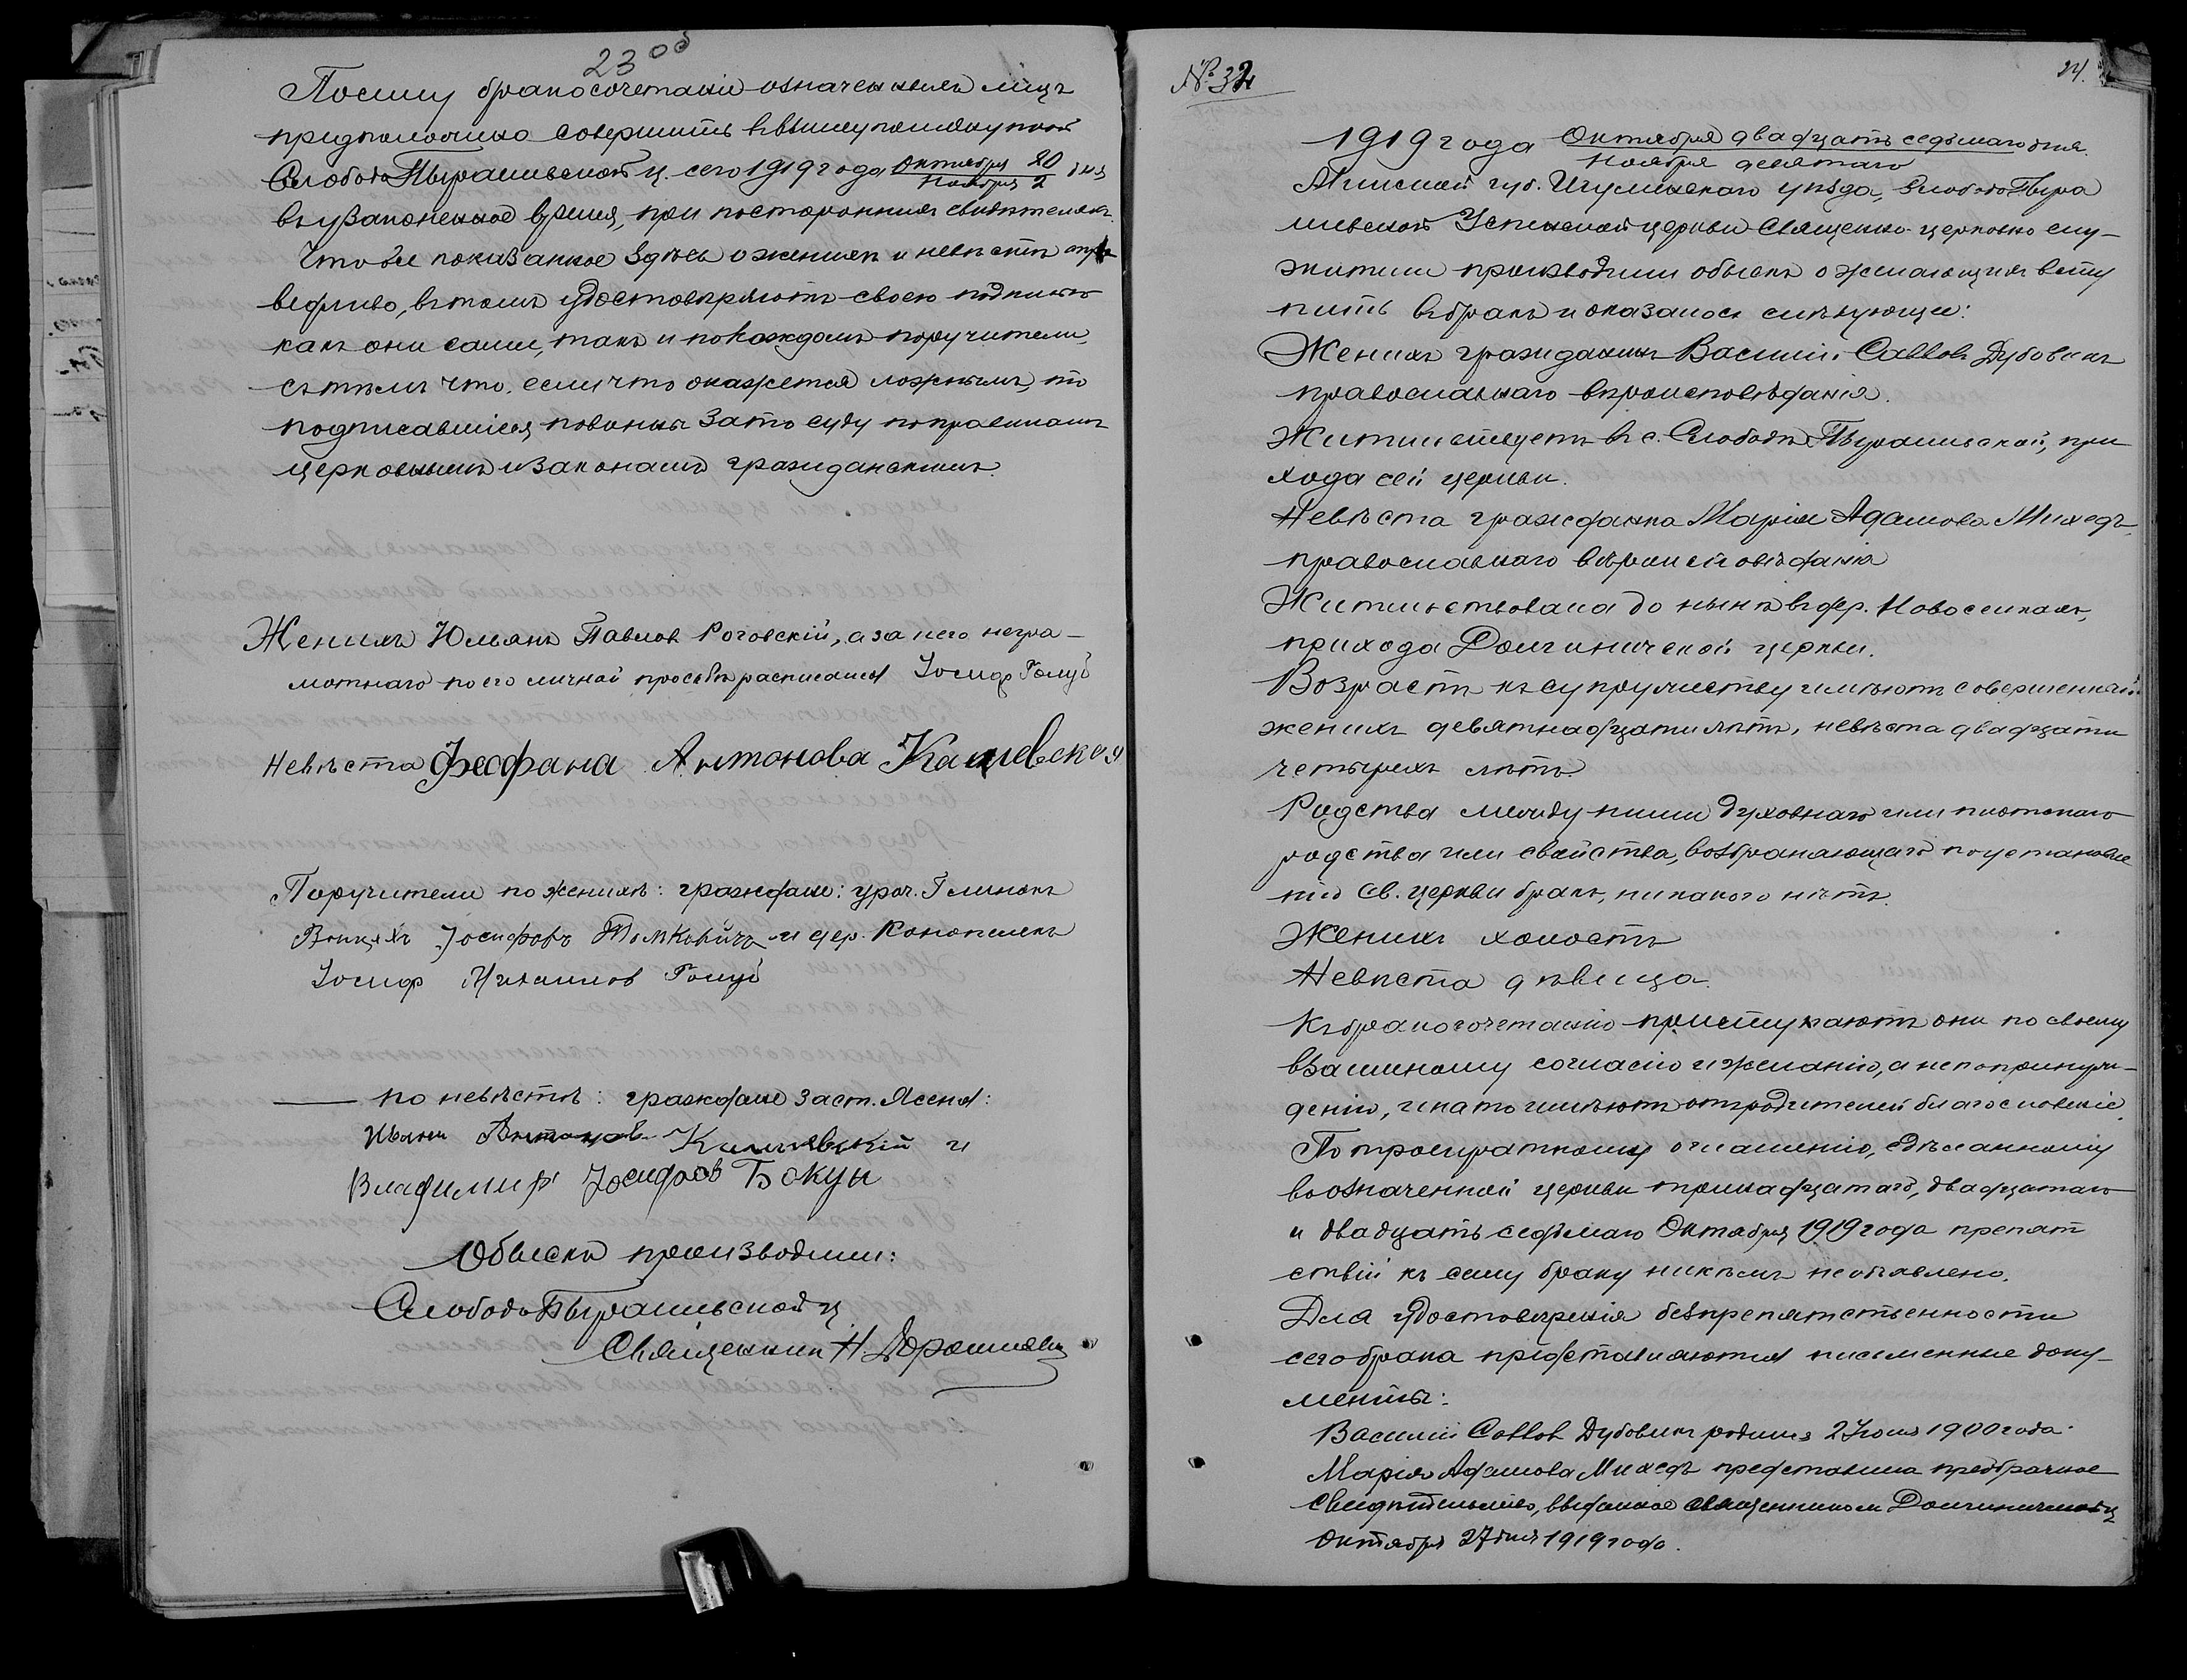 23 об
Посему бракосочетаніе означенныхъ лицъ
предположено совершить въ вышеупомянутой
Слободо Пырашевской ц. сего 1919 года Октября 20 / Ноября 2 дня
въ узаконенное время, при постороннихъ свидѣтеляхъ.
Что все показанное здѣсь о женихѣ и невѣстѣ спра
ведливо, въ томъ удостовѣряютъ своею подписью
какъ они сами, такъ и по каждомъ поручители,
съ тѣмъ что, если что окажется ложнымъ, то
подписавшіеся повинны за то суду по правиламъ
церковнымъ и законамъ гражданскимъ.
Женихъ Юльянъ Павловъ Роговскій, а за него негра-
мотнаго по его личной просьбѣ расписался Іосиф Голуб
Невѣста Феофана Антонова Камевская
Поручители по женихѣ: граждане: уроч. Глинокъ
Іосифовъ Томковичъ и дер. Конопелекъ
Іосиф Михаилов Голуб
— по невѣстѣ: граждане заст. Ясеня:
Иванъ Антонов и
Владимир Іосифов Бокун
Обыскъ производили:
Слободо Пырашевской ц.
Священник Н.
№ 32
24.
1919 года Октября двадцать седьмаго дня.
Ноября девятаго
Минской губ. Игуменскаго уѣзда, Слободо Пыра
шевской Успенской церкви Священно-церковно слу-
жители производили обыскъ о желающихъ всту
пить въ бракъ и оказалось слѣдующее:
Женихъ гражданинъ Василій Саввов Дубовикъ
православнаго вѣроисповѣданія.
Жительствуетъ въ с. Слободѣ Пырашевской, при
хода сей церкви.
Невѣста гражданка Марія Адамова Михедъ,
православнаго вѣроисповѣданія
Жительствовала до нынѣ въ дер. Новоселкахъ,
прихода Долгиничской церкви.
Возрастъ къ супружеству имѣютъ совершенный:
женихъ девятнадцати лѣтъ, невѣста двадцати
четырехъ лѣтъ.
Родства между ними духовнаго или плотскаго
родства или свойства, возбраняющаго по установле
нію Св. церкви бракъ, никакого нѣтъ.
Женихъ холостъ
Невѣста дѣвица.
Къ бракосочетанію приступаютъ они по своему
взаимному согласію и желанію, а не по принуж-
денію, и на то имѣютъ отъ родителей благословеніе.
По троекратному оглашенію, сдѣланному
въ означенной церкви тринадцатаго, двадцатаго
и двадцать седьмаго Октября 1919 года препят
ствій къ сему браку никѣмъ не объявлено.
Для удостовѣренія безпрепятственности
сего брака представляются письменные доку-
менты:
Василій Саввов Дубовикъ родился 2 1900 года.
Марія Адамова Михедъ представила предбрачное
свидѣтельство, выданное священником Долгиничской ц.
Октября 27 дня 1919 года.